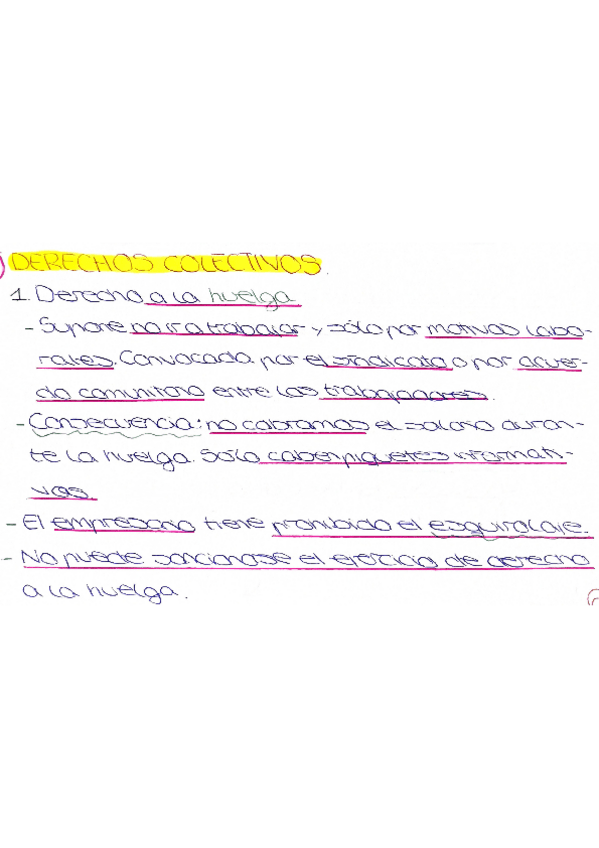 DERECHOS COLECTIVOS
1. Derecho a la huelga
- Supone no ir a trabajar y sólo por motivos labo-
rales. Convocada por el sindicato o por acuer-
do comunitario entre los trabajadores.
- Consecuencia: no cobramos el salario duran-
te la huelga. Sólo caben piquetes informati-
vos.
- El empresario tiene prohibido el esquirolaje.
- No puede sancionase el ejercicio de derecho
a la huelga.